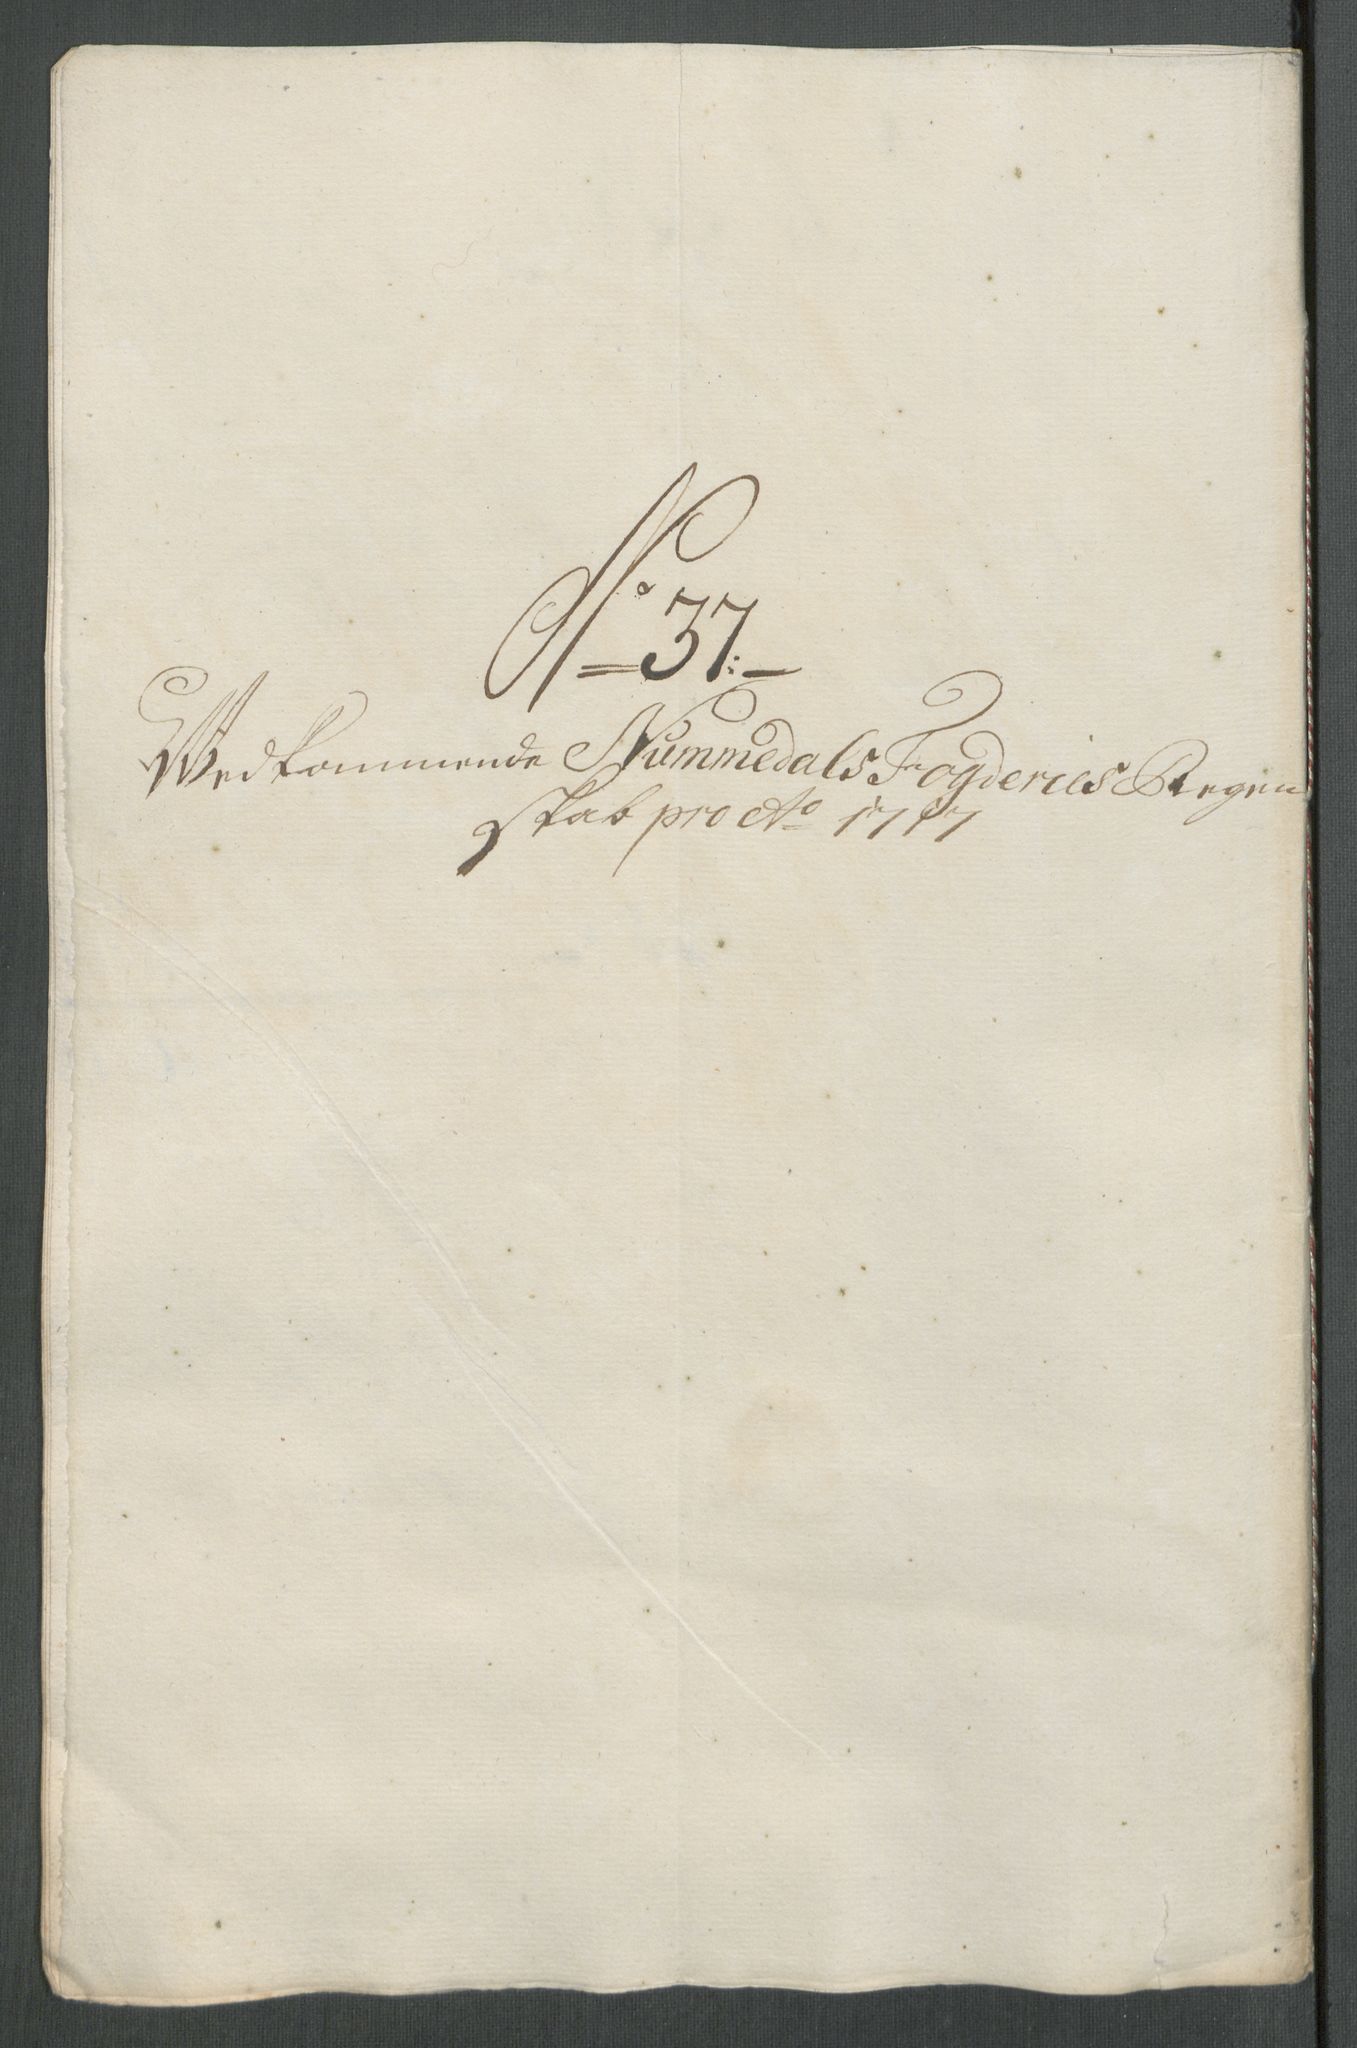 No 37:
Wedkommende Nummedals Fogderies Regen
skab pro Ao 1717